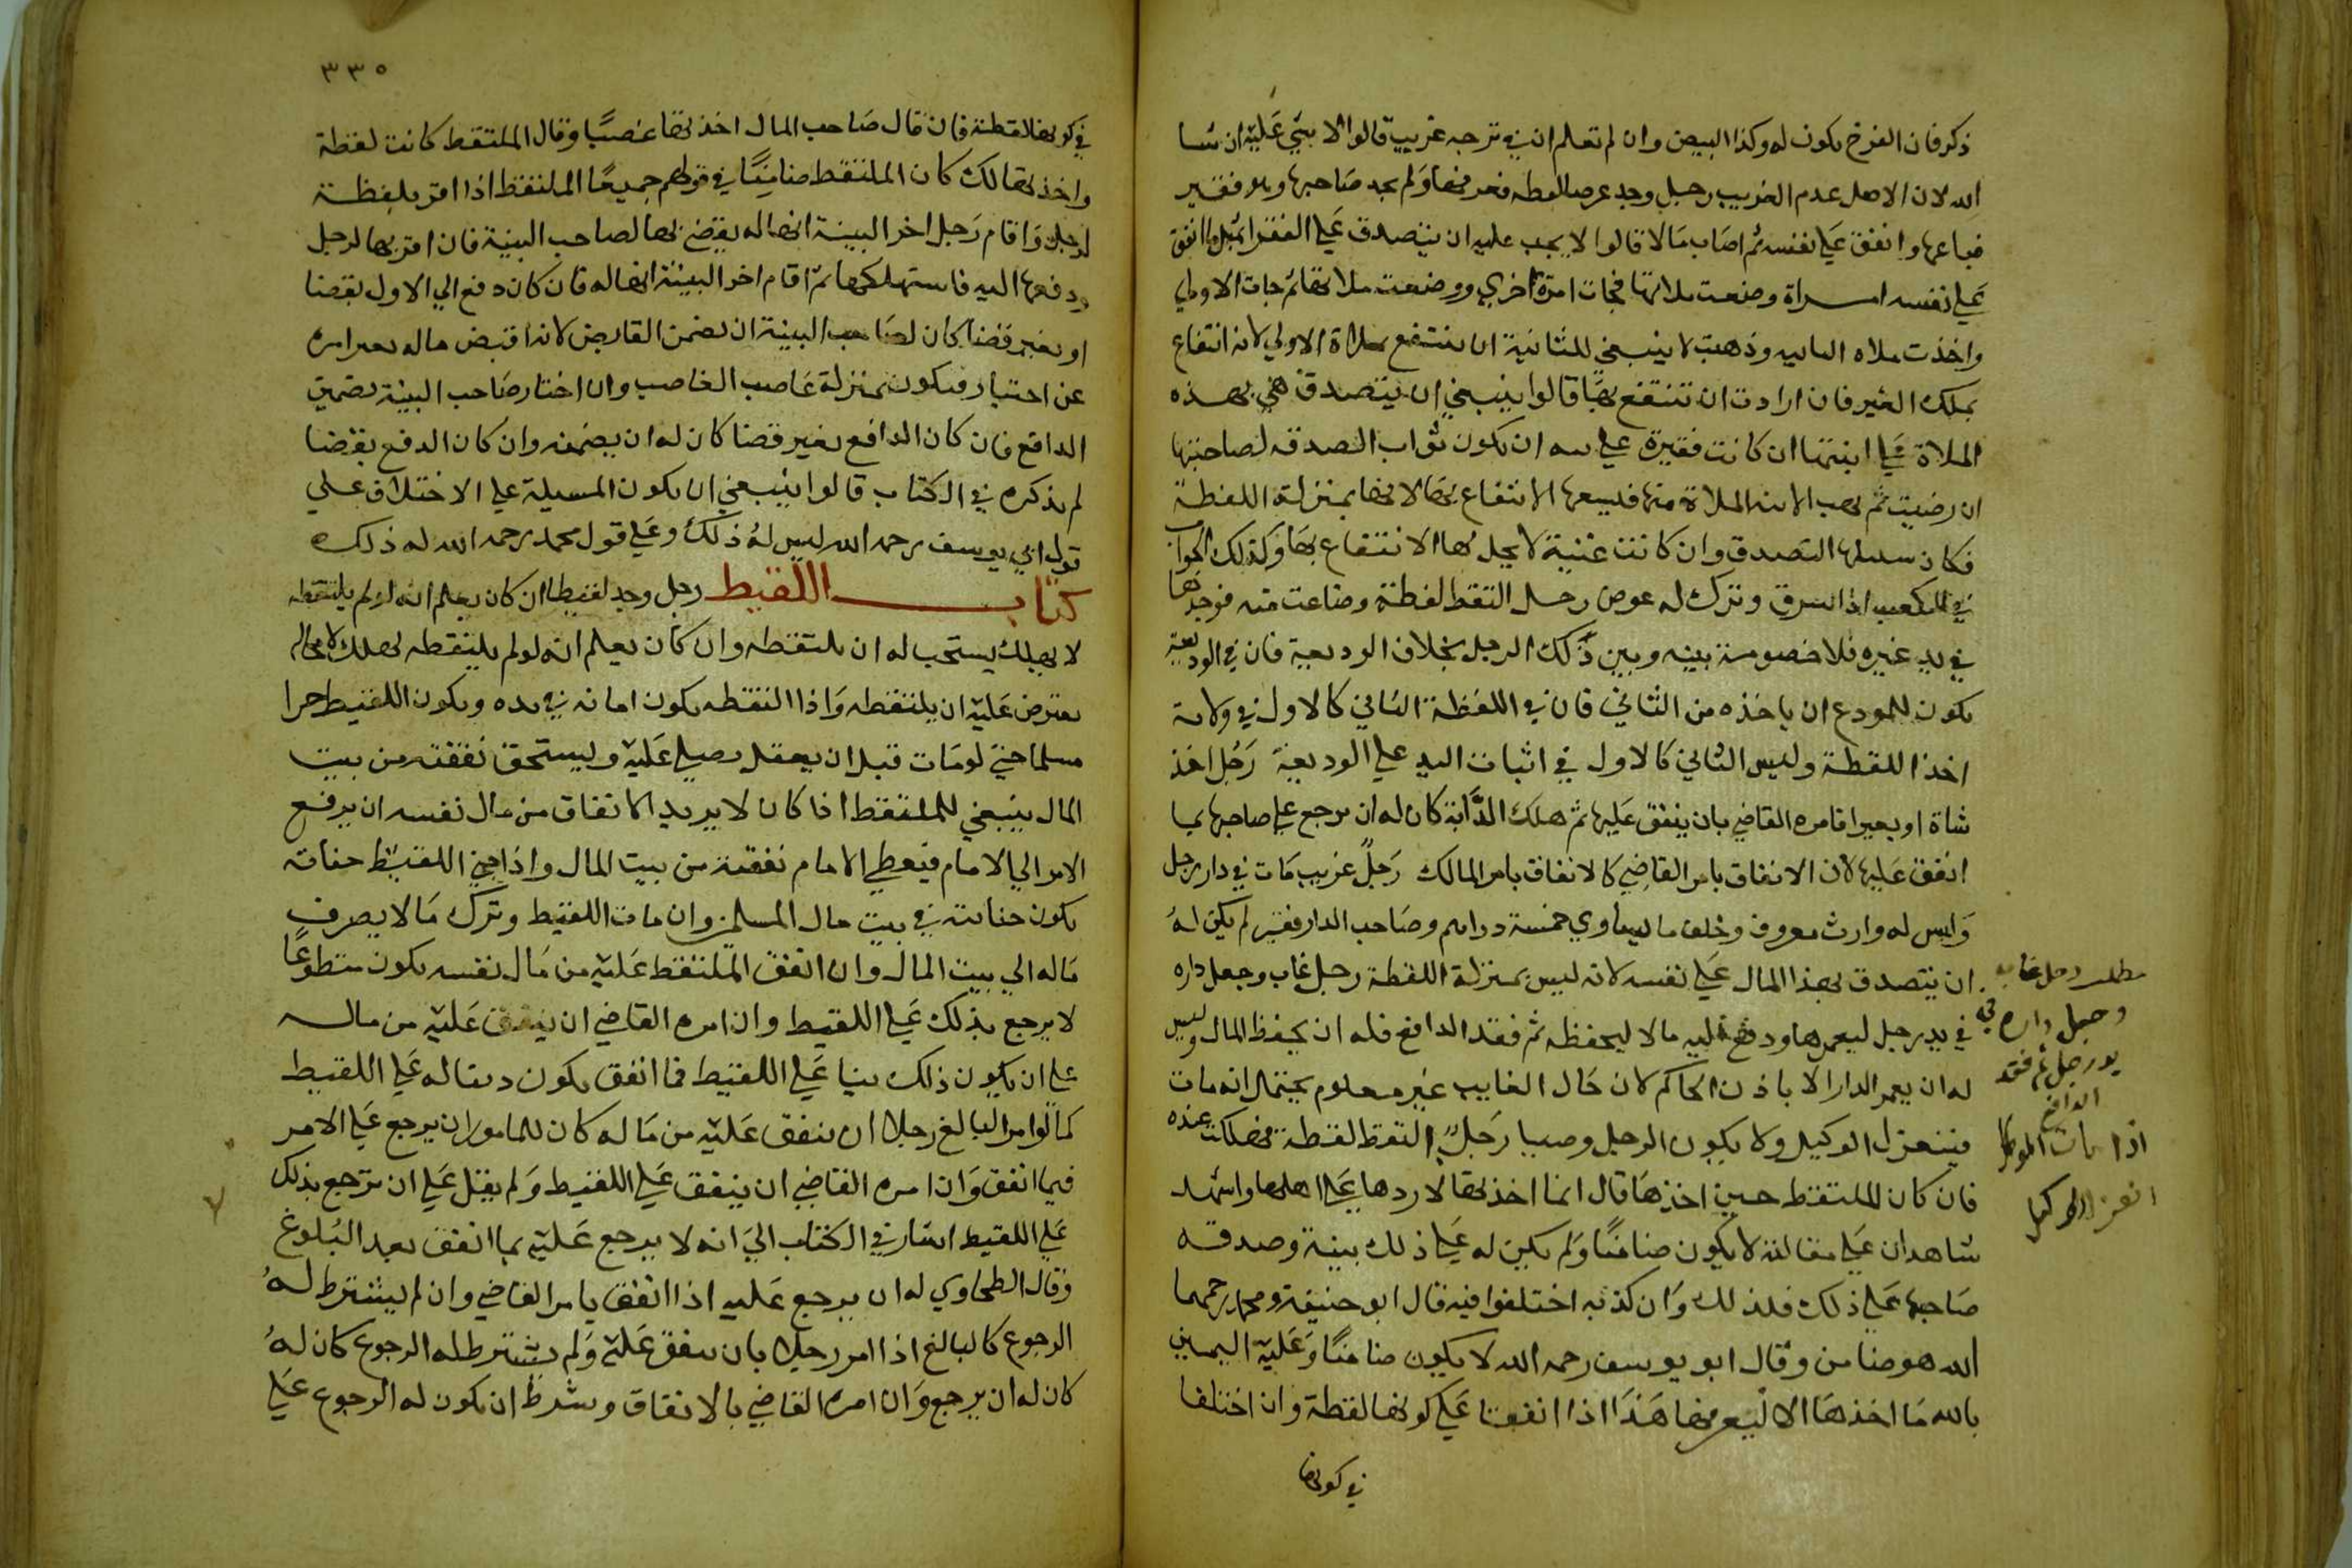 ذكر فان الفرخ يكون له وكذا البيض وان لم تعلم ان في ترجه غريب قالوا لا شي عليه ان شا
الله لان الاصل عدم الغريب رجل وجد عرضا لقطه فعرفها ولم يجد صاحبها وهو فقير
فباعها وانفق علي نفسه ثم اصاب مالا قالوا لا يجب عليه ان يتصدق علي الفقرا بمثل ما انفق
علي نفسه امراة وضعت ملاتها فجات امرة اخري ووضعت ملاتها ثم جات الاولي
واخذت ملاه الثانيه وذهبت لا ينبغي للثانية ان ينتفع بملاة الاولي لانه انتفاع
بملك الغير فان ارادت ان تنتفع بها قالوا ينبغي ان يتصدق هي بهذه
الملاة علي ابنتها ان كانت فقيرة علي نيه ان يكون ثواب الصدقه لصاحبتها
ان رضيت ثم يهب الابنه الملاة منها فيسعها الانتفاع بها لانها بمنزلة اللقطة
فكان سبيلها التصدق وان كانت غنية لا يحل لها الانتفاع بها وكذلك الجواب
في المكعب اذا سرق وترك له عوض رجل التقط لقطة وضاعت منه فوجدها
في يد غيره فلا خصومة بينه وبين ذلك الرجل بخلاف الوديعة فان في الوديعة
يكون للمودع ان ياخذه من الثاني فان في اللقطة الثاني كالاول في ولاية
اخذ اللقطة وليس الثاني كالاول في اثبات اليد علي الوديعة رجل اخذ
شاة او بعيرا فامره القاضي بان ينفق عليها ثم هلك الدابة كان له ان يرجع علي صاحبها بما
انفق عليها لان الانفاق بامر القاضي كالانفاق بامر المالك رجل غريب مات في دار رجل
وليس له وارث معروف وخلف ما يساوي خمسة دراهم وصاحب الدار فقير لم يكن له
ان يتصدق بهذا المال علي نفسه لانه ليس بمنزلة اللقطة رجل غاب وجعل داره
في يد رجل ليعمرها ودفع اليه مالا ليحفظه ثم فقد الدافع فله ان يحفظ المال وليس
له ان يعمر الدار الا باذن الحاكم لان حال الغايب غير معلوم يحتمل انه مات
فينعزل الوكيل ولا يكون الرجل وصيا رجل التقط لقطة فهلكت عنده
فان كان الملتقط حين اخذها قال انما اخذتها لاردها علي اهلها واشهد
شاهدان علي مقالته لا يكون ضامنا ولم يكن له علي ذلك بينة وصدقه
صاحبها علي ذلك فلذلك وان كذبه اختلفوا فيه قال ابو حنيفة ومحمد رحمهما
الله هو ضامن وقال ابو يوسف رحمه الله لا يكون ضامنا وعليه اليمين
بالله ما اخذها الا ليعرفها هذا اذا اتفقا علي كونها لقطة وان اختلفا
في كونها
مطلب رجل غاب
وجعل داره في
يد رجل ثم فقد
الدافع
اذا مات الموكل
انعزل الوكيل
٣٣٥
في كونها لقطة فان قال صاحب المال اخذتها غصبا وقال الملتقط كانت لقطة
واخذتها لك كان الملتقط ضامنا في قولهم جميعا الملتقط اذا اقر بلقطة
لرجل واقام رجل اخر البينة انها له يقضي بها لصاحب البينة فان اقر بها لرجل
ودفعها اليه فاستهلكها ثم اقام اخر البينة انها له فان كان دفع الي الاول بقضا
او بغير قضا كان لصاحب البينة ان يضمن القابض لانه اقتبض ماله بغير امره
عن اختيار فيكون بمنزلة غاصب الغاصب وان اختار صاحب البينة تضمين
الدافع فان كان الدافع بغير قضا كان له ان يضمنه وان كان الدفع بقضا
لم يذكره في الكتاب قالوا ينبغي ان يكون المسيلة علي الاختلاف علي
قول ابي يوسف رحمه الله ليس له ذلك وعلي قول محمد رحمه الله له ذلك
كتاب اللقيط رجل وجد لقيطا ان كان يعلم انه لو لم يلتقطه
لا يهلك يستحب له ان يلتقطه وان كان يعلم انه لو لم يلتقطه يهلك لا محاله
يفترض عليه ان يلتقطه واذا التقطه يكون امانه في يده ويكون اللقيط حرا
مسلما حتي لو مات قبل ان يعقل يصلي عليه ويستحق نفقته من بيت
المال ينبغي للملتقط اذا كان لا يريد الانفاق من مال نفسه ان يرفع
الامر الي الامام فيعطي الامام نفقته من بيت المال واذا جني اللقيط جناية
يكون جنايته في بيت مال المسلمين وان مات اللقيط وترك مالا يصرف
ماله الي بيت المال وان انفق الملتقط عليه من مال نفسه يكون متطوعا
لا يرجع بذلك علي اللقيط وان امره القاضي ان ينفق عليه من ماله
علي ان يكون ذلك دينا علي اللقيط فما انفق يكون دينا له علي اللقيط
كما لو امر البالغ رجلا ان ينفق عليه من ماله كان للمامور ان يرجع علي الامر
فيما انفق وان امره القاضي ان ينفق علي اللقيط ولم يقل علي ان ترجع بذلك
علي اللقيط اشار في الكتاب الي انه لا يرجع عليه بما انفق بعد البلوغ
وقال الطحاوي له ان يرجع عليه اذا انفق بامر القاضي وان لم يشترط له
الرجوع كالبالغ اذا امر رجلا بان ينفق عليه ولم يشترط له الرجوع كان له
كان له ان يرجع وان امره القاضي بالانفاق وشرط ان يكون له الرجوع علي